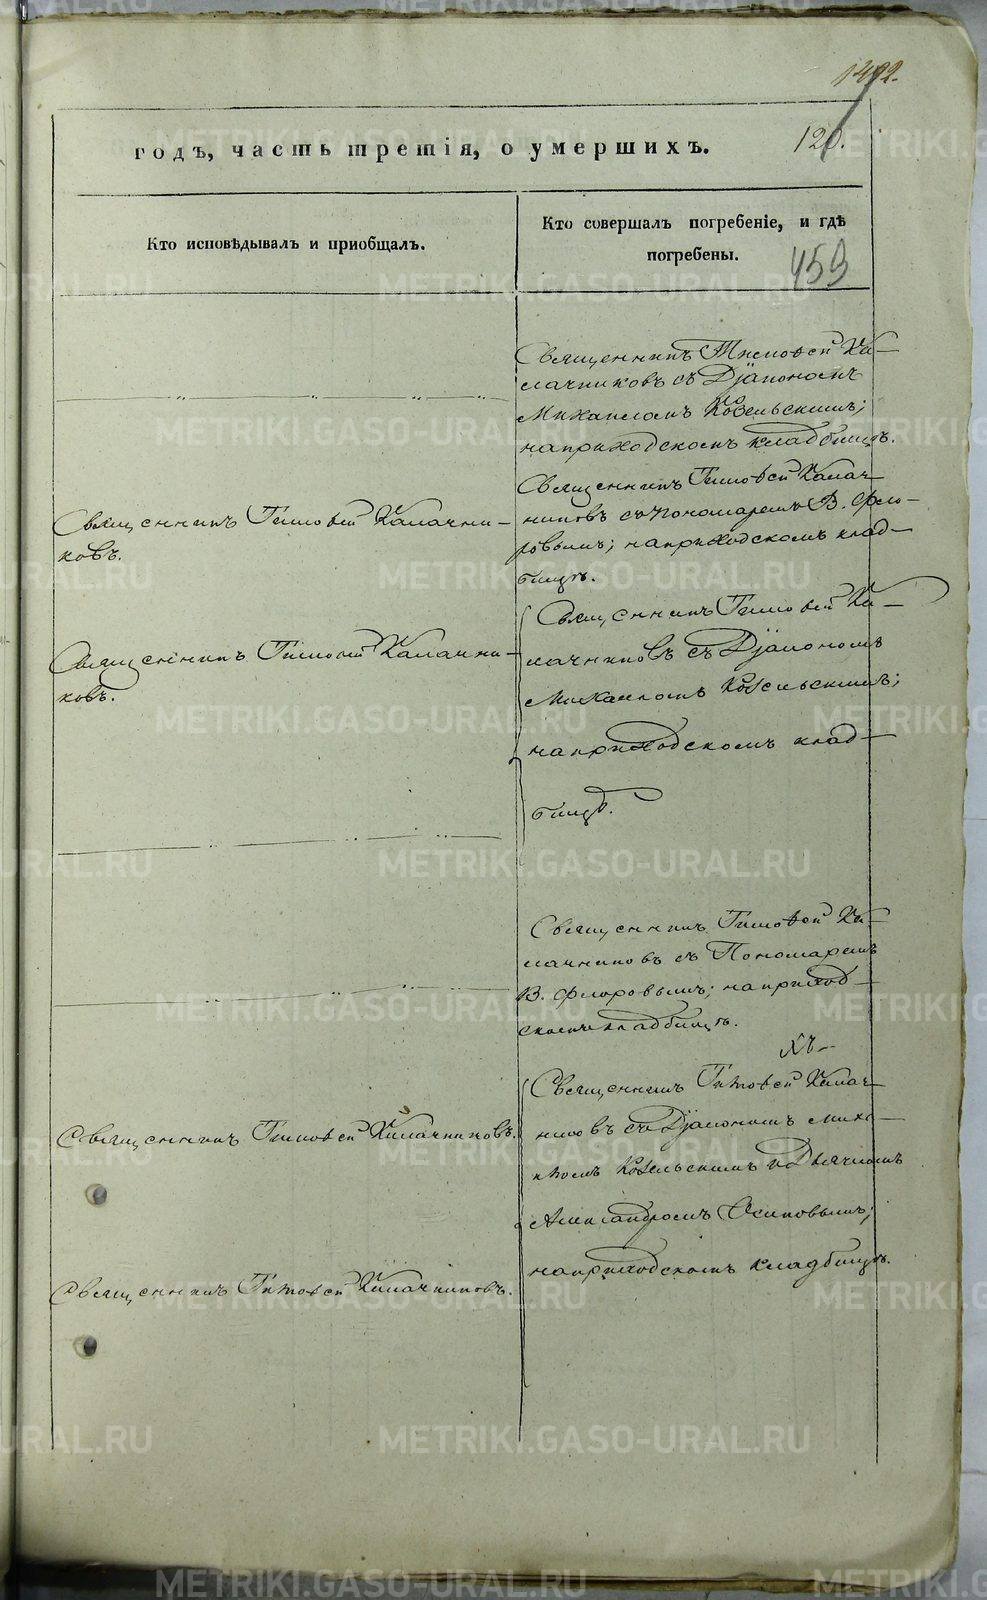 120.
годъ, часть третія, о умершихъ.
Кто исповѣдывалъ и приобщалъ.
Кто совершалъ погребеніе, и гдѣ
погребены.
459
Священникъ Тимофей Ка-
лачниковъ съ Діакономъ
Михаиломъ Козельскимъ;
на приходскомъ кладбищѣ.
Священникъ Тимофей Калачни-
ковъ.
Священникъ Тимофей Калач-
никовъ съ пономаремъ В. Фло-
ровымъ; на приходскомъ клад-
бищѣ.
Священникъ Тимофей Калачни-
ковъ.
Священникъ Тимофей Ка-
лачниковъ съ Діакономъ
Михаиломъ Козельскимъ;
на приходскомъ клад-
бищѣ.
Священникъ Тимофей Ка-
лачниковъ съ Пономаремъ
В. Флоровымъ; на приход-
скомъ кладбищѣ.
Священникъ Тимофей Калачниковъ.
Священникъ Тимофей Калач-
никовъ съ Діакономъ Миха-
иломъ Козельскимъ и Дьячкомъ
Александромъ Осиповымъ;
на приходскомъ кладбищѣ.
Священникъ Тимофей Калачниковъ.
METRIKI.GASO-URAL.RU